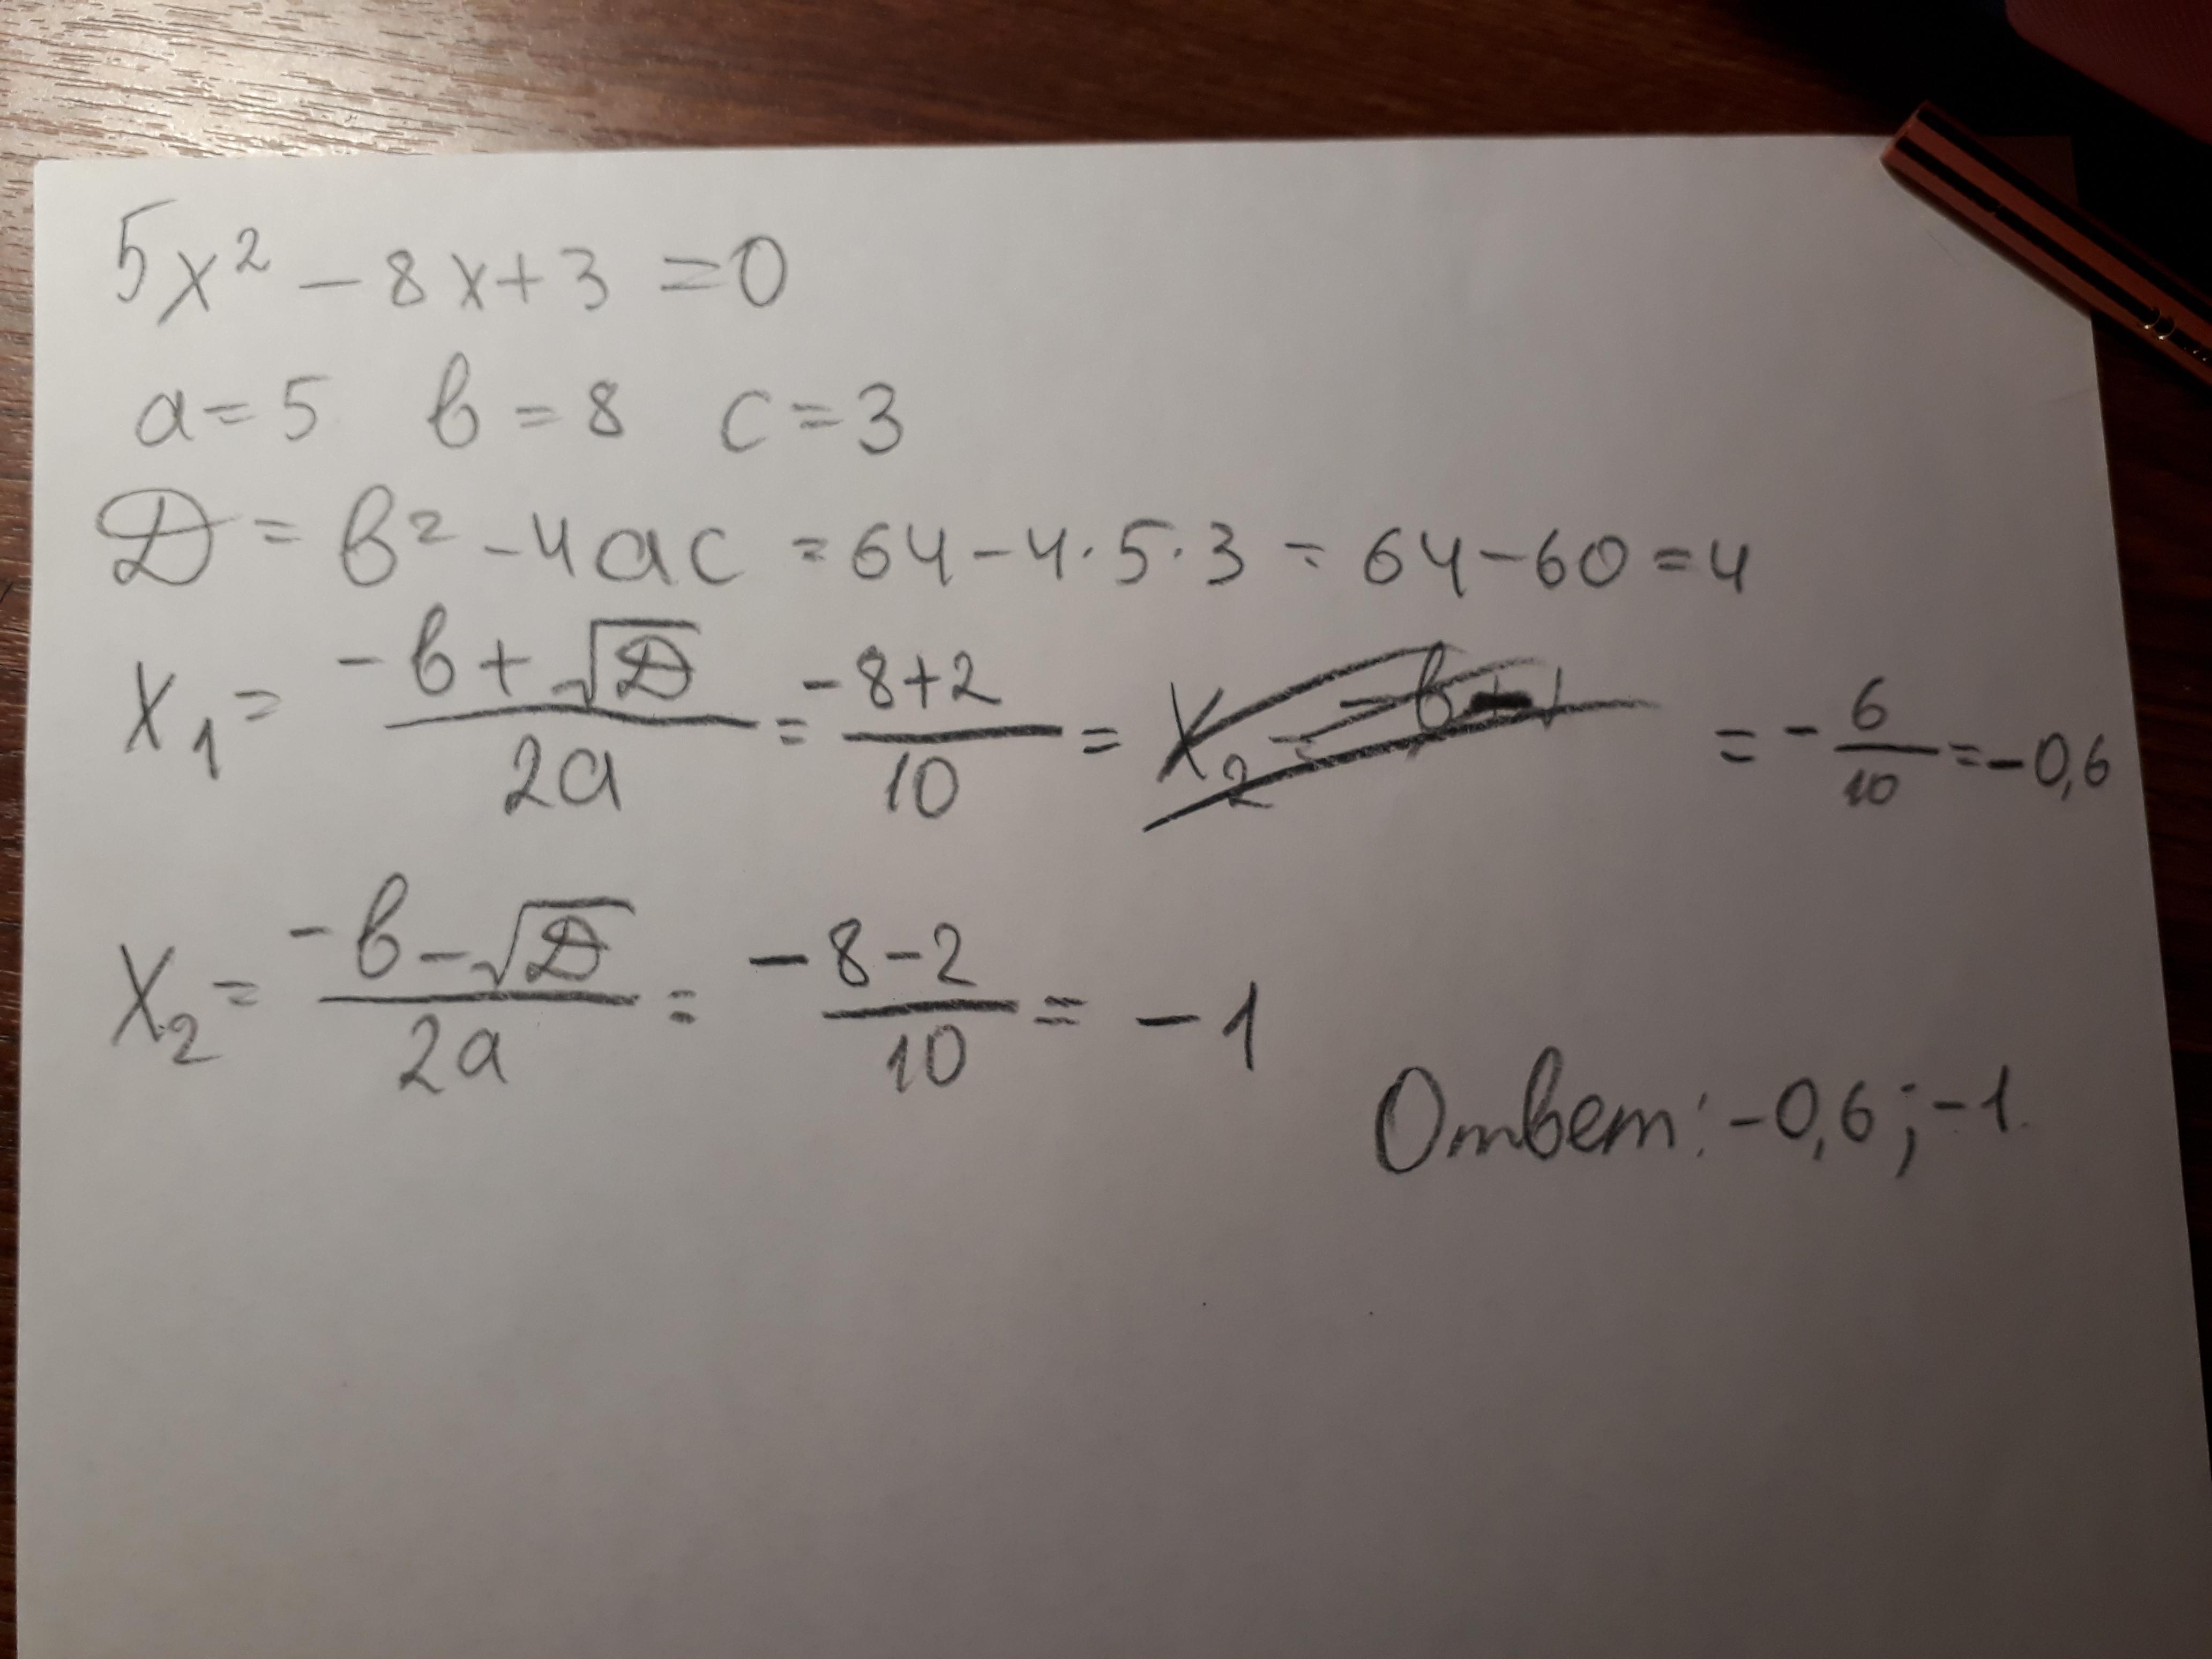 5x² - 8x + 3 = 0
a = 5 в = 8 c = 3
D = в² - 4ac = 64 - 4·5·3 = 64 - 60 = 4
x₁ = (-в + √D)/2a = (-8+2)/10 = x₂ = -в = -6/10 = -0,6
x₂ = (-в - √D)/2a = (-8-2)/10 = -1
Ответ: -0,6; -1.